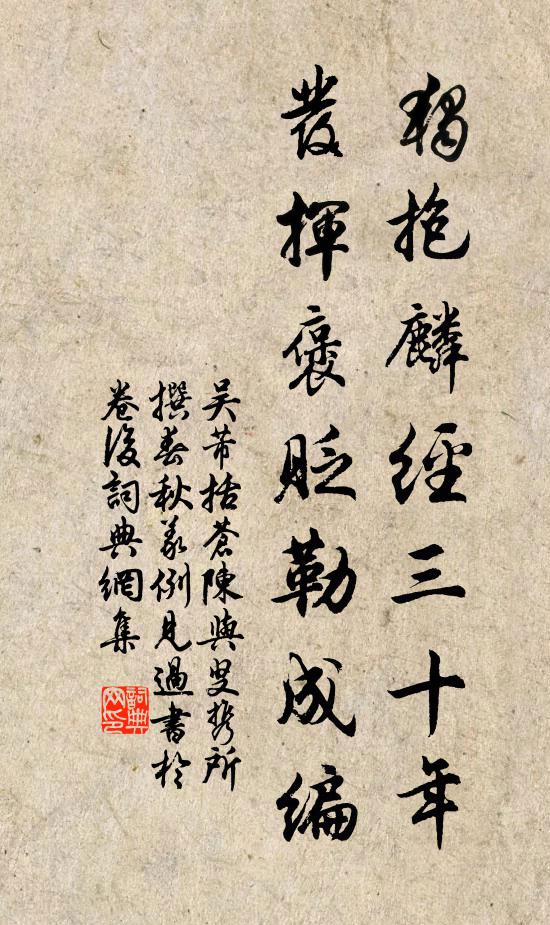 獨抱麟經三十年
發揮褒貶勒成編
吳芾括蒼陳與叟攜所
撰春秋義例見過書於
卷後詞典網集
詞典網印